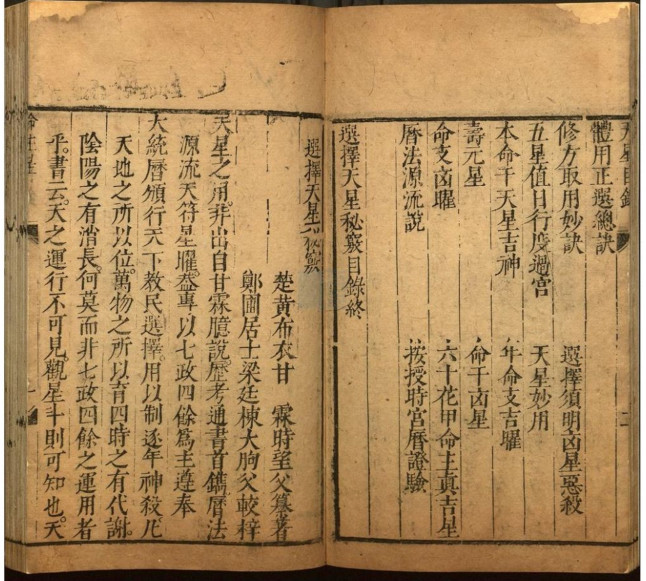 天星目錄
體用正選總訣
修方取用妙訣 選擇須明凶星惡殺
五星值日行度過宮 天星妙用
本命干天星吉神 年命支吉曜
壽元星 命干凶星
命支凶曜 六十花甲命主真吉星
曆法源流說 撥授時宮曆證驗
選擇天星秘竅目錄終
選擇天星秘竅
楚黃布衣甘 霖時望父纂著
鄭圃居士梁廷棟大胸父較梓
天星之用非出自甘霖臆說歷考通書首鐫曆法
源流天符星曜葢專以七政四餘為主遵奉
大統曆頒行天下教民選擇用以制逐年神殺凡
天地之所以位萬物之所以育四時之有代謝
陰陽之有消長何莫而非七政四餘之運用者
乎書云天之運行不可見觀星斗則可知也天